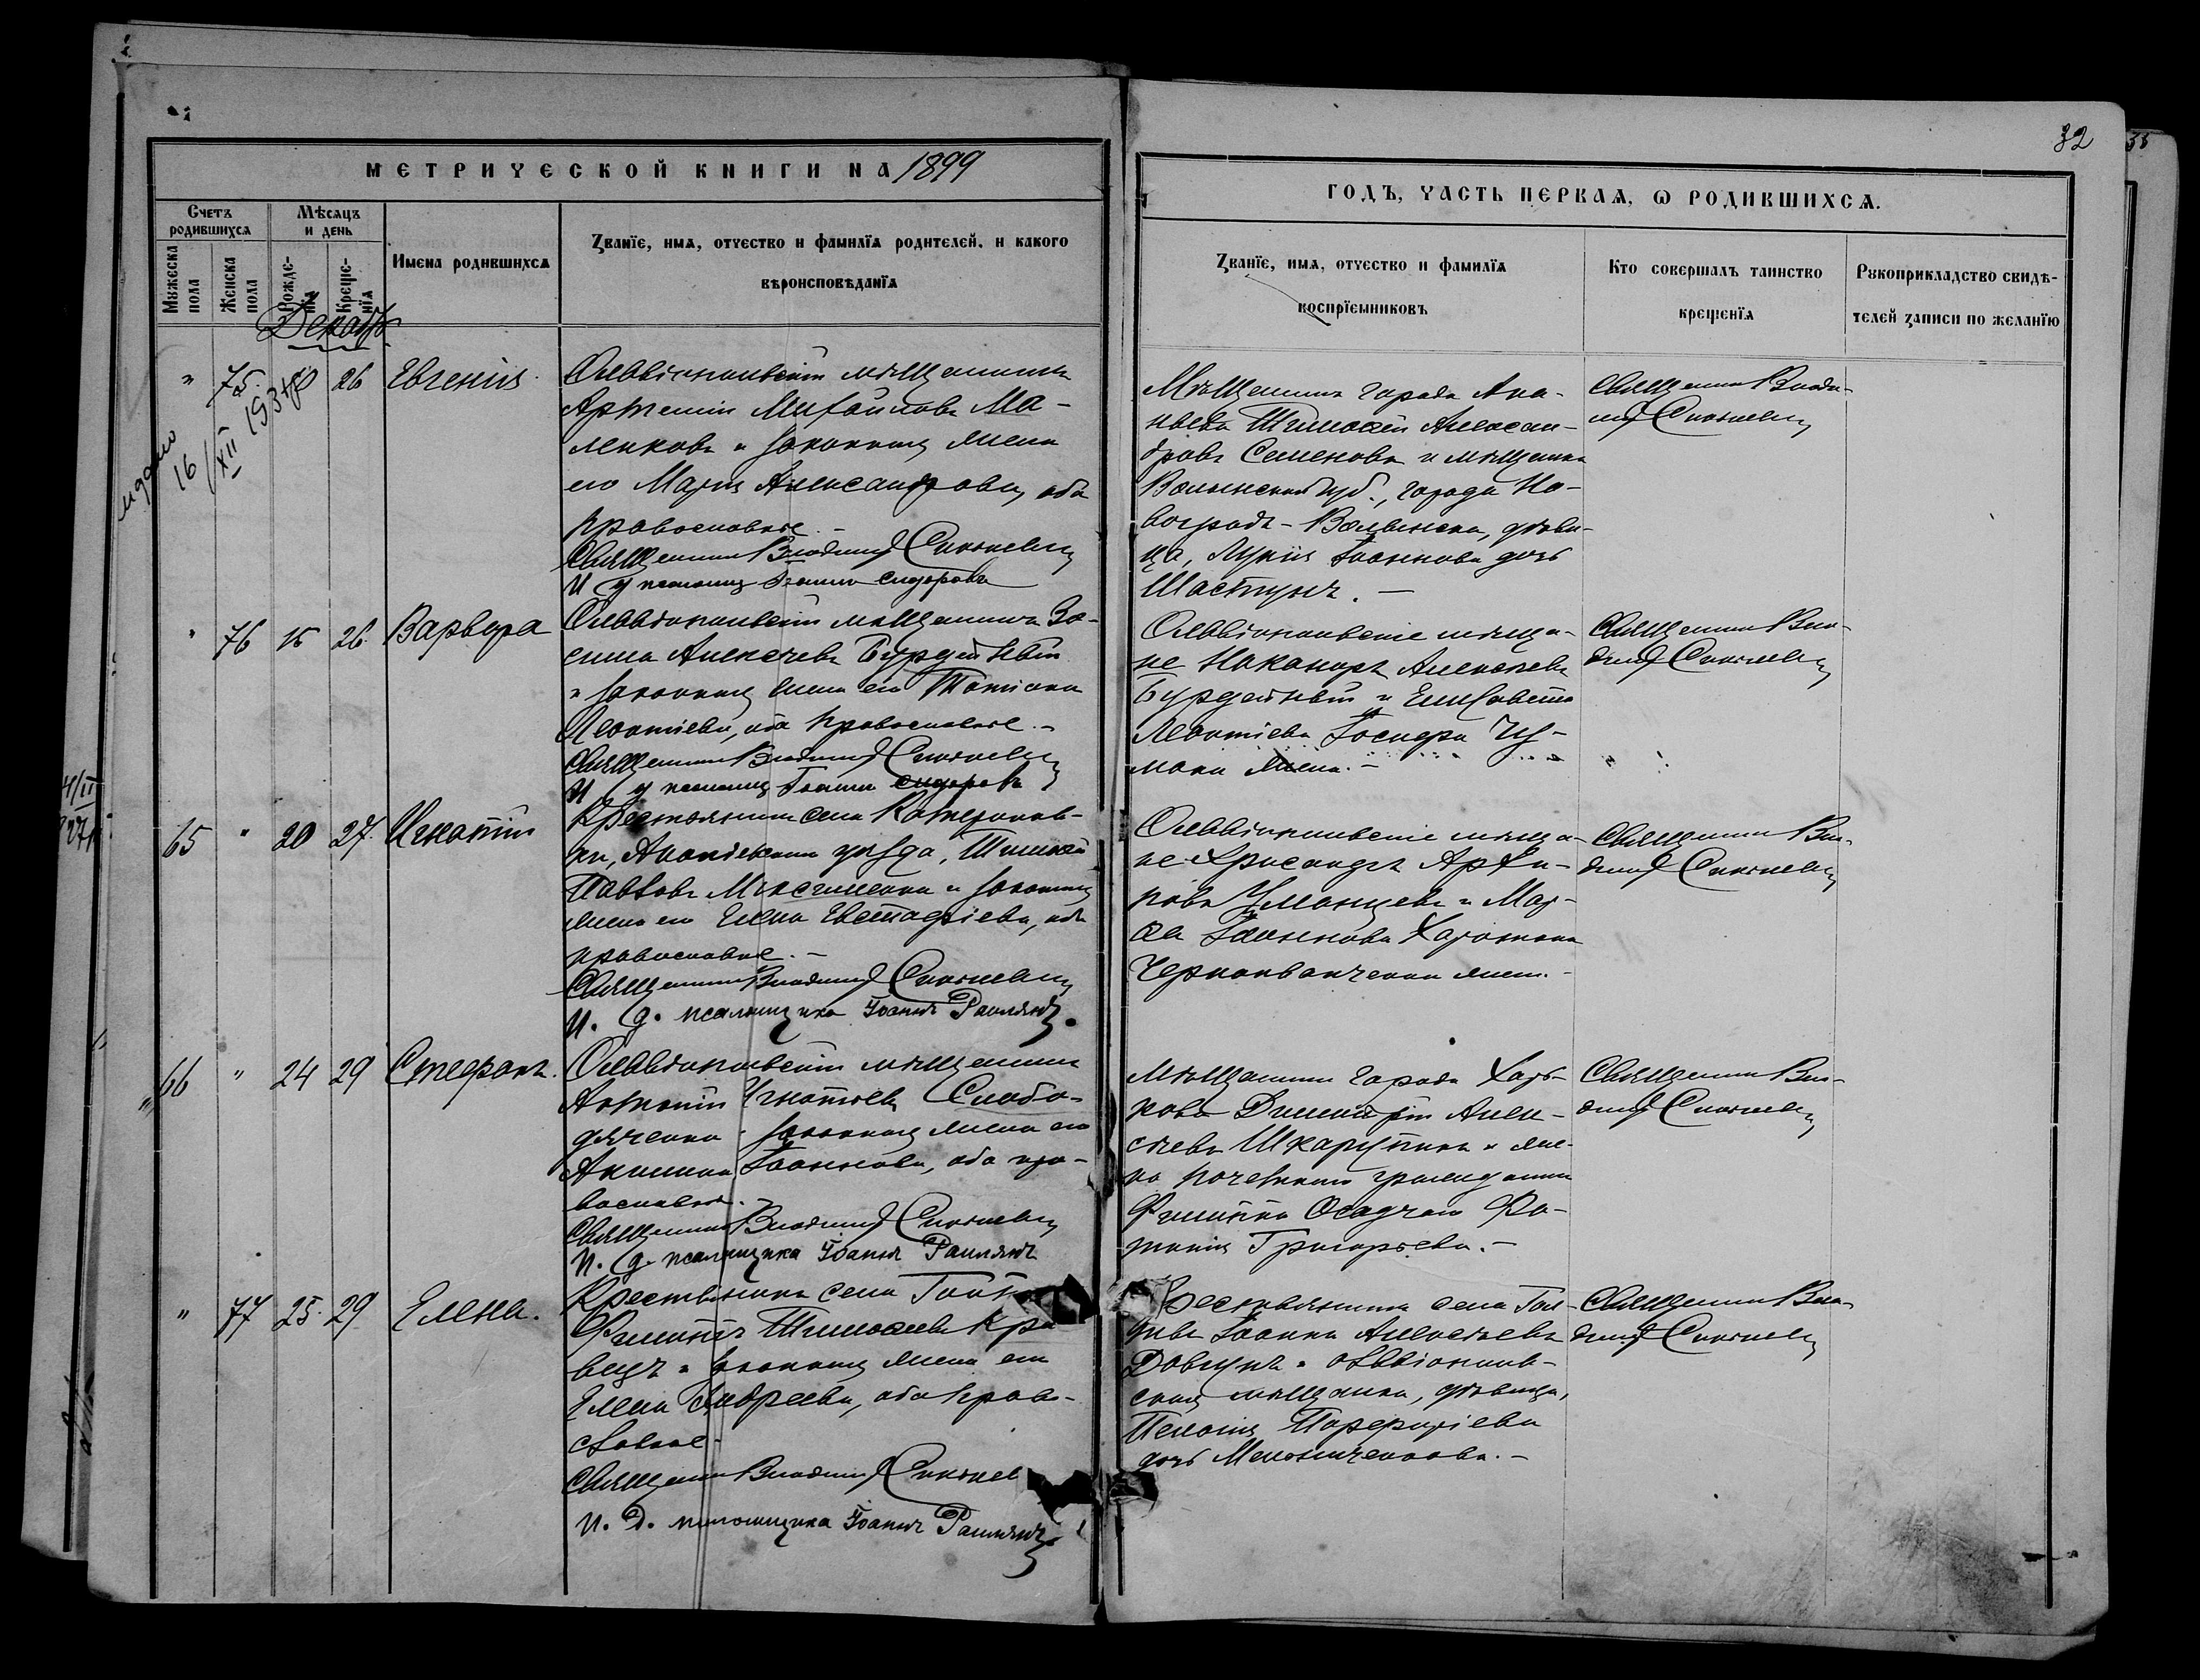 32
МЕТРИЧЕСКОЙ КНИГИ НА 1899
ГОДЪ, ЧАСТЬ ПЕРВАЯ, Ѡ РОДИВШИХСѦ.
Счетъ родившихсѧ
Мѣсѧцъ и день
Мꙋжеска пола
Женска пола
Рожденїѧ
Крещенїѧ
Имена родившихсѧ
Званїе, имѧ, отчество и фамилїѧ родителей, и какого
вѣроисповѣданїѧ
Званїе, имѧ, отчество и фамилїѧ
воспрїемниковъ
Кто совершалъ таинство
крещенїѧ
Рꙋкоприкладство свидѣ-
телей записи по желанїю
Декабрь
" 75. 26 Евгенія
16/XII 193
Ольвіопольскій мѣщанинъ
Артемій Михайловъ Ма-
ленковъ и законная жена
его Марія Александрова, оба
православные. -
Священникъ Владимір
И д псаломщ Іоаннъ Сидоровъ
Мѣщанинъ города Ана-
ньева Тимоѳей Алексан-
дровъ Семеновъ и мѣщанка
Волынской губ., города Но-
воградъ-Волынска, дѣви-
ца, Лукія Іоаннова дочь
Шастунъ. -
Священникъ Влади-
мір
" 76 15 26. Варвара
Ольвіопольскій мѣщанинъ Зо-
сима Алексѣевъ Бурдейный
и законная жена его Татіана
Леонтіева, оба православные. -
Священникъ Владимір
И д псаломщ Іоаннъ Сидоровъ
Ольвіопольскіе мѣща-
не Никаноръ Алексѣевъ
Бурдейный и Елисавета
Леонтіева Іосифа Чу-
мака жена. -
Священникъ Вла-
димір
65 " 20 27. Игнатій
Крестьянинъ села Катеринов-
ки, Ананьевскаго уѣзда, Тимоѳей
Павловъ Максименко и законная
жена его Елена Евстафіева, оба
православные. -
Священникъ Владимір
И. д. псаломщика Іоаннъ
Ольвіопольскіе мѣща-
не Хрисанфъ
ровъ Уманцевъ и Мар-
ѳа Іоаннова Харитона
жена. -
Священникъ Вла-
димір
66 " 24 29 Стефанъ.
Ольвіопольскій мѣщанинъ
Антоній Игнатьевъ Слобо-
дяченко и законная жена его
Акилина Іоаннова, оба пра-
вославные. -
Священникъ Владимір
И. д. псаломщика Іоаннъ
Мѣщанинъ города Харь-
кова Димитрій Алек-
сѣевъ Шкарупинъ и же-
на почетнаго гражданина
Филиппа Осадчаго Фо-
тинія Григорьева. -
Священникъ Вла-
димір
" 77 25. 29 Елена.
Крестьянинъ села
Филиппъ Тимоѳеевъ Кра
вецъ и законная жена его
Елена Андреева, оба право-
славные -
Священникъ Владимір
И. д. псаломщика Іоаннъ
Крестьянинъ села Гол-
Іоаннъ Алексѣевъ
Довгунъ и ольвіополь-
ская мѣщанка, дѣвица,
Пелагія Порфиріева
дочь Мельниченкова. -
Священникъ Вла-
димір